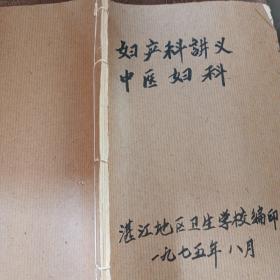 妇产科讲义
中医妇科
湛江地区卫生学校编印
一九七五年八月